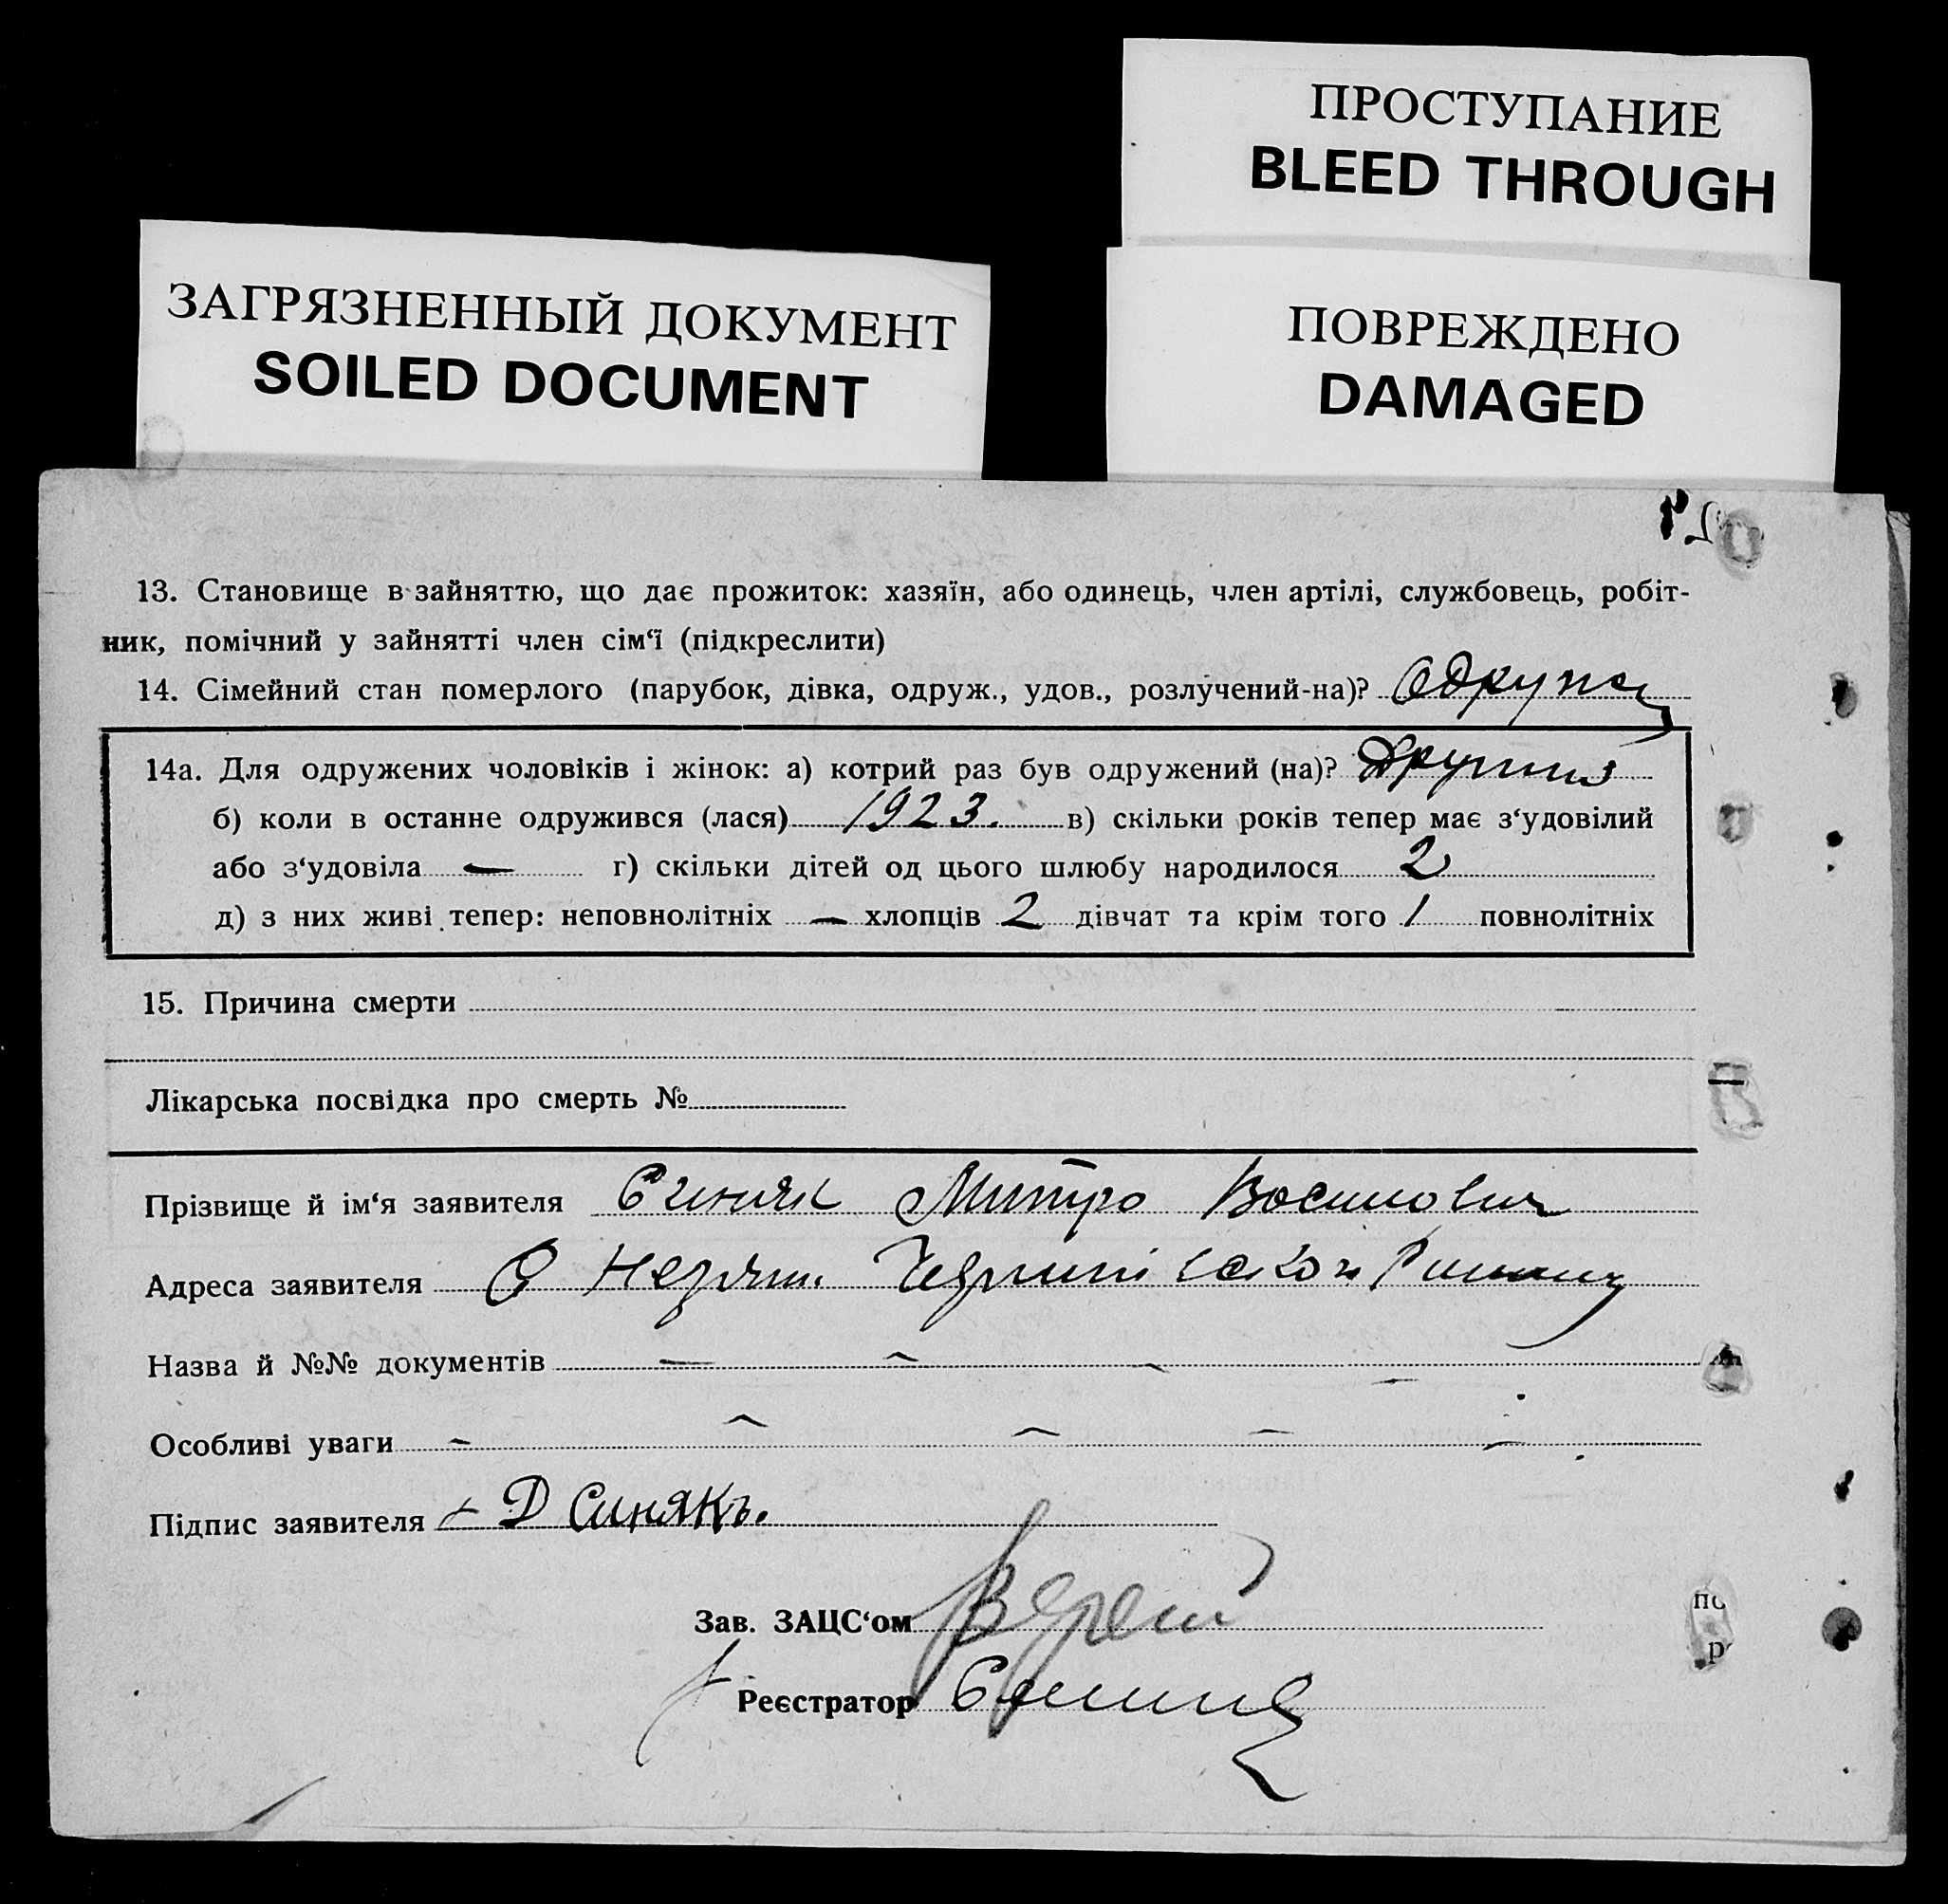 ПРОСТУПАНИЕ
BLEED THROUGH
ЗАГРЯЗНЕННЫЙ ДОКУМЕНТ
SOILED DOCUMENT
ПОВРЕЖДЕНО
DAMAGED
13. Становище в зайняттю, що дає прожиток: хазяїн, або одинець, член артілі, службовець, робіт-
ник, помічний у зайнятті член сім‘ї (підкреслити)
14. Сімейний стан померлого (парубок, дівка, одруж., удов., розлучений-на)?
14а. Для одружених чоловіків і жінок: а) котрий раз був одружений (на)?
б) коли в останне одружився (лася) 1923. в) скільки років тепер має з‘удовілий
або з‘удовіла — г) скільки дітей од цього шлюбу народилося 2
д) з них живі тепер: неповнолітніх — хлопців 2 дівчат та крім того 1 повнолітніх
15. Причина смерти
Лікарська посвідка про смерть №
Прізвище й ім‘я заявителя Синяк Митро
Адреса заявителя
Назва й №№ документів — — — —
Особливі уваги — — — — —
Підпис заявителя Д Синякъ.
Зав. ЗАЦС‘ом
Реєстратор